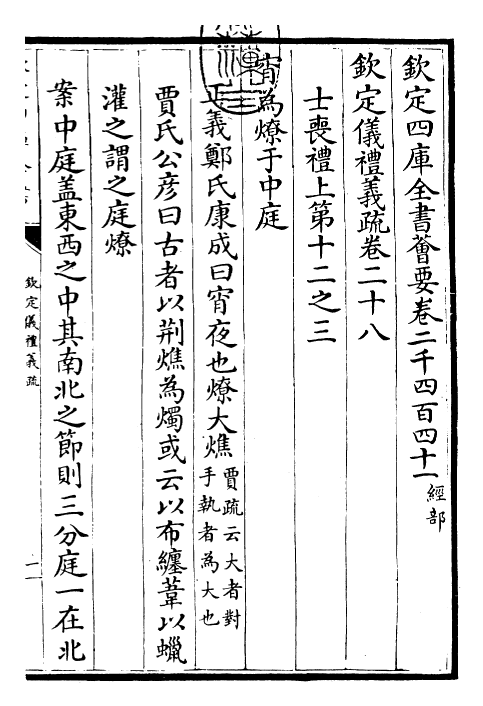 欽定四庫全書薈要卷二千四百四十一 經部
欽定儀禮義疏卷二十八
士喪禮上第十二之三
宵為燎于中庭
正義鄭氏康成曰宵夜也燎大燋賈疏云大者對手執者為大也
賈氏公彦曰古者以荆燋為燭或云以布纏葦以蠟
灌之謂之庭燎
案中庭盖東西之中其南北之節則三分庭一在北
欽定儀禮義疏